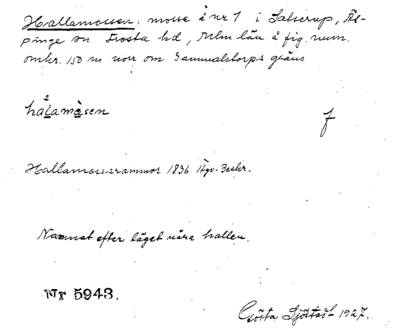 Hallamossen: mosse å nr 1 i Salserup, Äs-
pinge sn Frosta hd, Mlm län å fig. num.
omkr. 150 m norr om Gammalstorps gräns
hålamåsen f
Hallamosseammor 1836 Äg. beskr.
Namnet efter läget nära hallen.
Nr 5943.
Gösta Sjöstedt 1927.